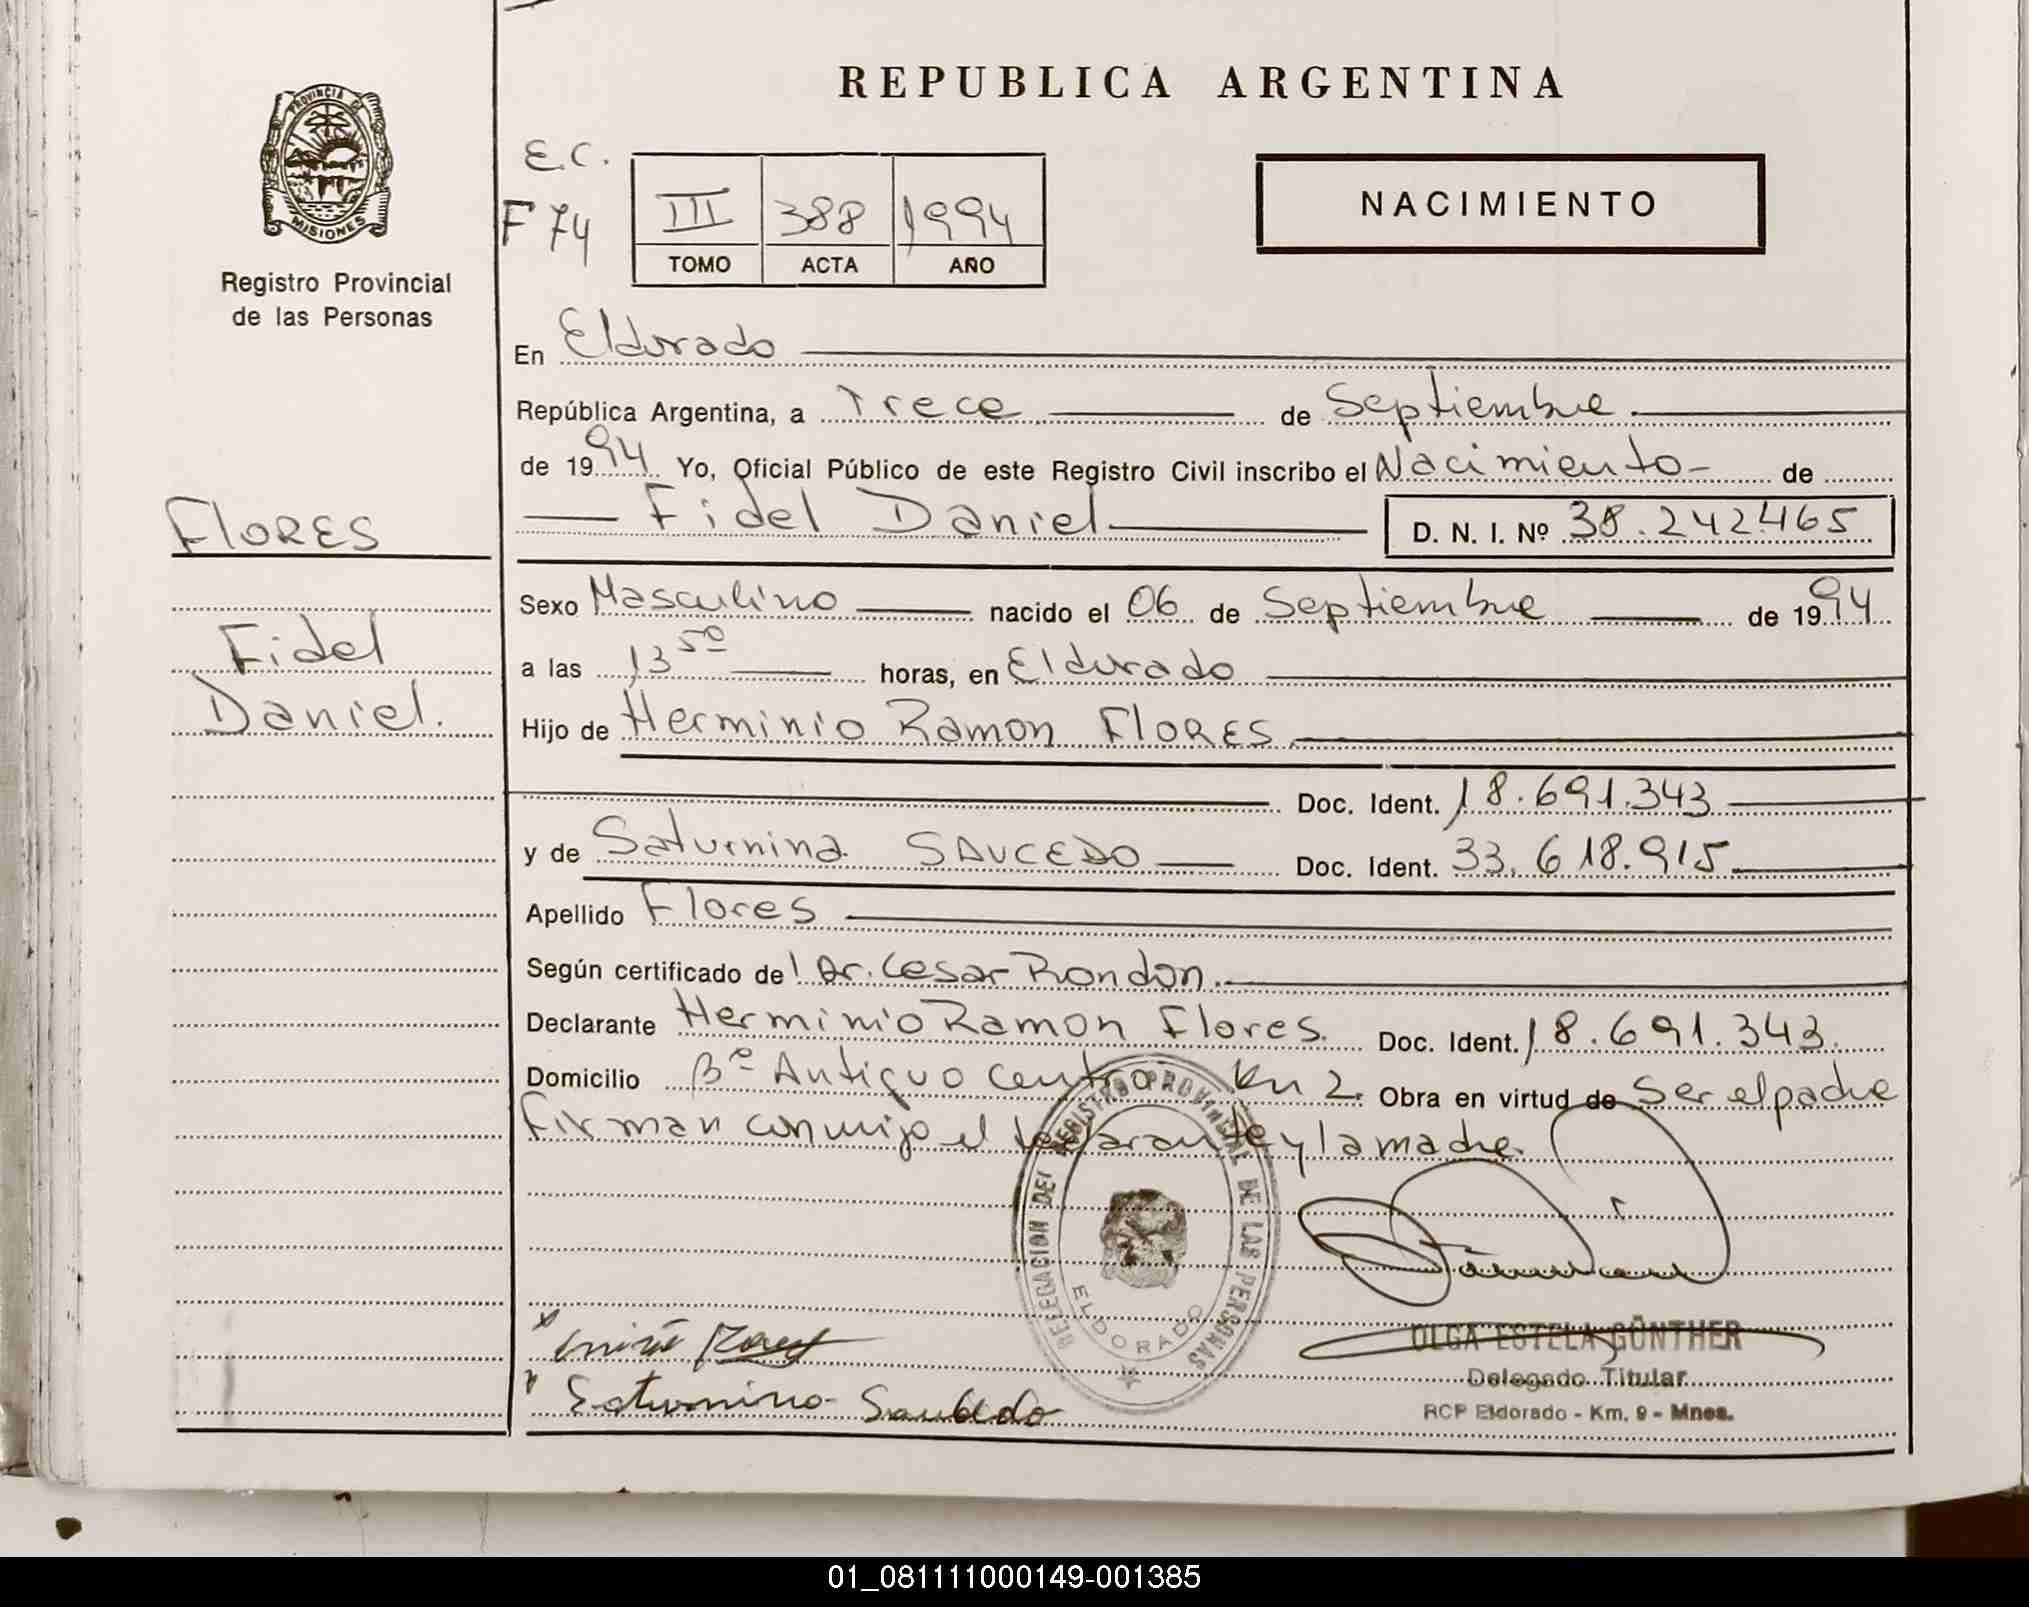 REPUBLICA ARGENTINA
PROVINCIA D
MISIONES
Registro Provincial
de las Personas
E.C.
F 74
III 388 1994
TOMO ACTA AÑO
NACIMIENTO
En Eldorado
República Argentina, a Trece de Septiembre
de 1994 Yo, Oficial Público de este Registro Civil inscribo el Nacimiento de
Fidel Daniel D. N. I. Nº 38.242.465
FLORES
Fidel
Daniel.
Sexo Masculino nacido el 06 de Septiembre de 1994
a las 13 50 horas, en Eldorado
Hijo de Herminio Ramon FLORES
Doc. Ident. 18.691.343
y de Saturnina SAUCEDO Doc. Ident. 33.618.915
Apellido Flores
Según certificado de Dr. Cesar Rondon.
Declarante Herminio Ramon Flores. Doc. Ident. 18.691.343.
Domicilio Bº Antiguo Centro Km 2. Obra en virtud de Ser el padre
Firman conmigo el declarante y la madre.
DELEGACION DEL REGISTRO PROVINCIAL DE LAS PERSONAS
ELDORADO
OLGA ESTELA GÜNTHER
Delegado Titular
RCP Eldorado - Km. 9 - Mnes.
01_081111000149-001385